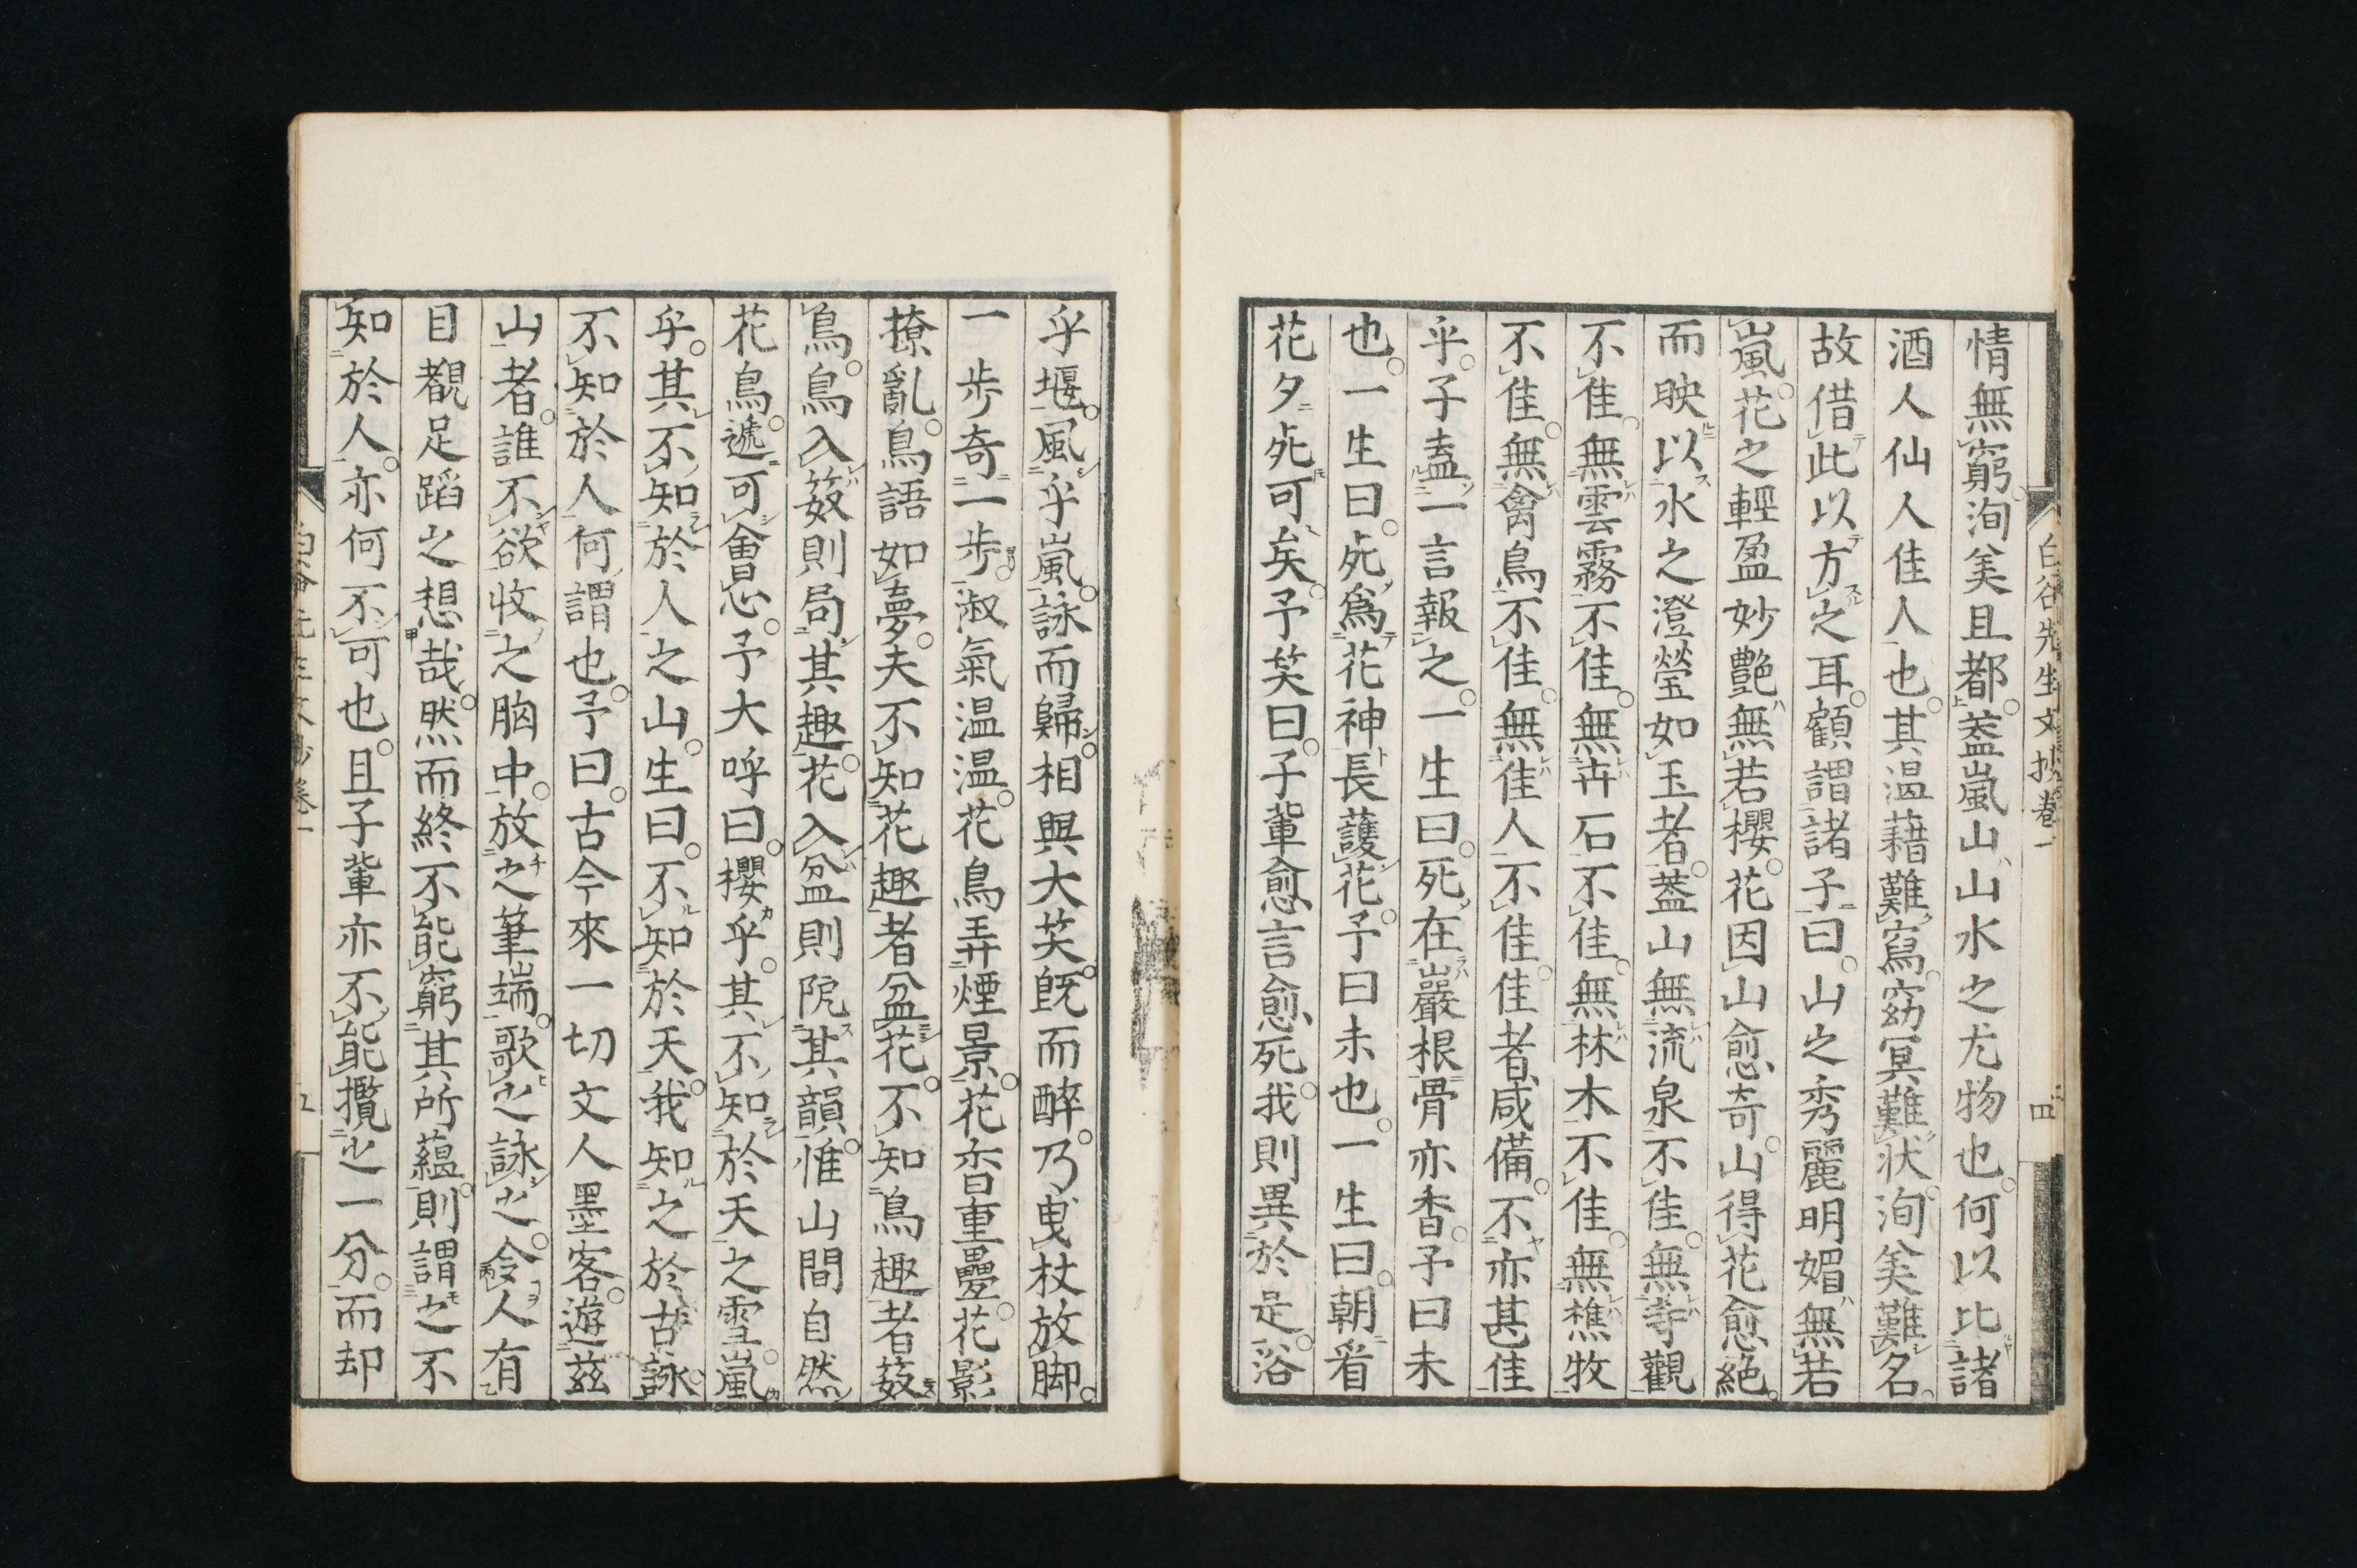 白谷先生文抄卷一
四
情無窮洵美且都蓋嵐山山水之尤物也何以比諸
酒人仙人佳人也其温藉難寫窈冥難狀洵美難名
故借此以方之耳顧謂諸子曰山之秀麗明媚無若
嵐花之輕盈妙艷無若櫻花因山愈奇山得花愈絶
而映以水之澄瑩如玉者蓋山無流泉不佳無寺觀
不佳無雲霧不佳無卉石不佳無林木不佳無樵牧
不佳無禽鳥不佳無佳人不佳佳者咸備不亦甚佳
乎子盍一言報之一生曰死在巖根骨亦香予曰未
也一生曰死爲花神長護花予曰未也一生曰朝看
花夕死可矣予笑曰子輩愈言愈死我則異於是浴
乎堰風乎嵐詠而歸相與大笑既而醉乃曳杖放脚
一步奇一步淑氣温温花鳥弄煙景花香重疊花影
撩亂鳥語如夢夫不知花趣者盆花不知鳥趣者籔
鳥鳥入籔則局其趣花入盆則院其韻惟山間自然
花鳥遞可會心予大呼曰櫻乎其不知於天之雪嵐
乎其不知於人之山生曰不知於天我知之於古詠
不知於人何謂也予曰古今來一切文人墨客遊茲
山者誰不欲收之胸中放之筆端歌之詠之令人有
目覩足蹈之想哉然而終不能窮其所蘊則謂之不
知於人亦何不可也且子輩亦不能攬之一分而却